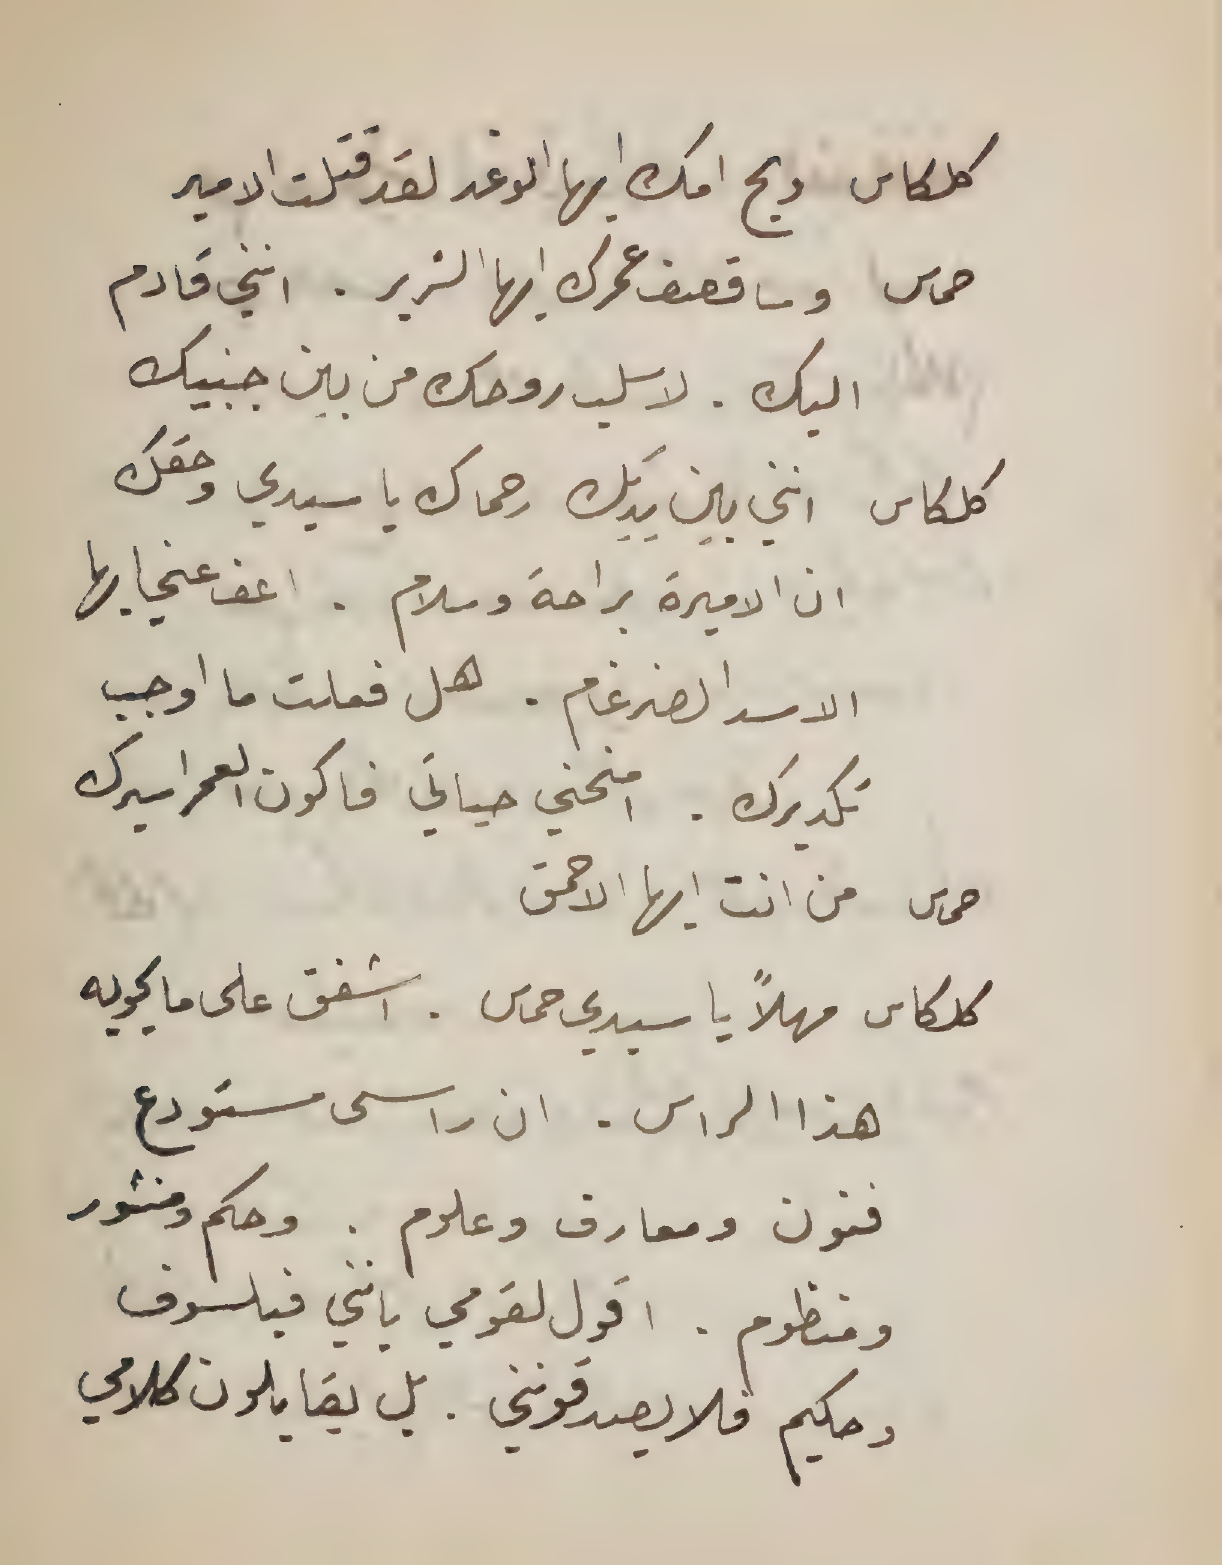 كلكاس ويح امك ايها الوغد لقد قتلت الامير
حماس وساقصف عمرك ايها الشرير . انني قادم
اليك . لاسلب روحك من بين جنبيك
كلكاس انني بين يديك رحماك يا سيدي وحقك
ان الاميرة براحة وسلام . اعف عني ايها
الاسد الضرغام . هل فعلت ما اوجب
تكديرك . امنحني حياتي فاكون العمر اسيرك
حماس من انت ايها الاحمق
كلكاس مهلاً يا سيدي حماس . اشفق على ما يحويه
هذا الراس . ان راسى مستودع
فنون ومعارف وعلوم . وحكم ومنثور
ومنظوم . اقول لقومي بانني فيلسوف
وحكيم فلا يصدقونني . بل يقابلون كلامي